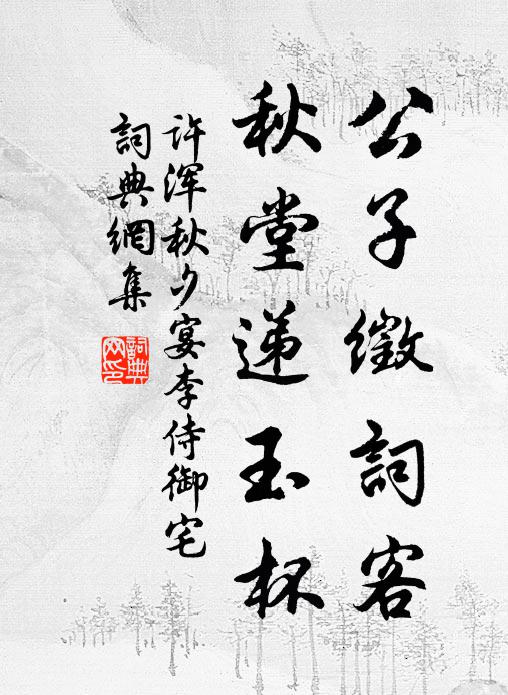 公子徵詞客
秋堂递玉杯
许浑秋夕宴李侍御宅
詞典網集
詞典网印